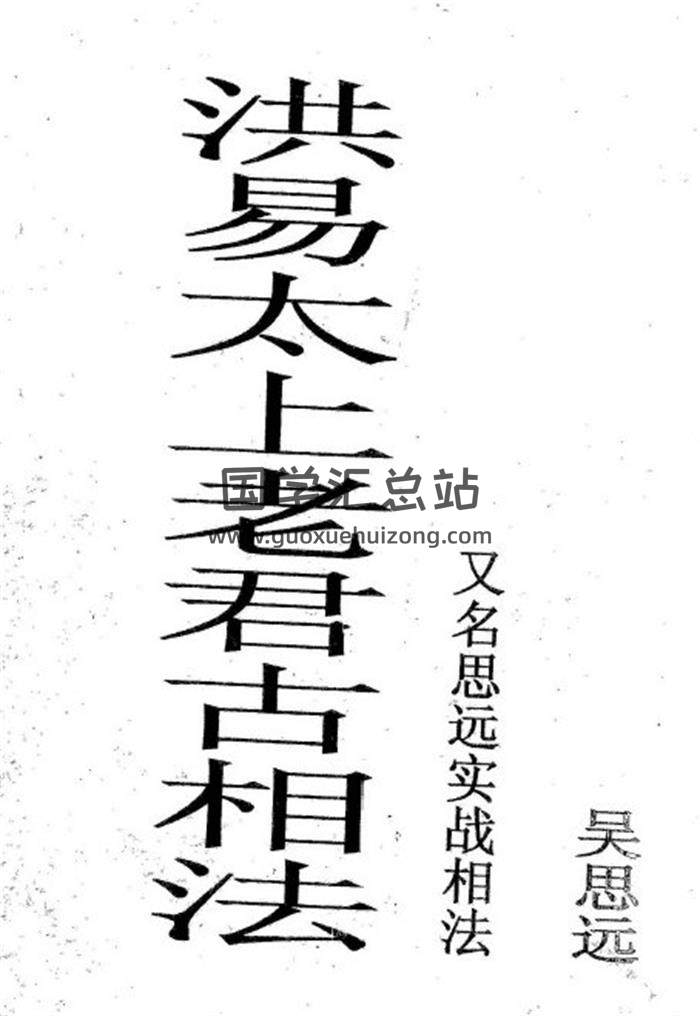 洪易太上老君古相法
国学汇总站
www.guoxuehuizong.com
又名思远实战相法
吴思远